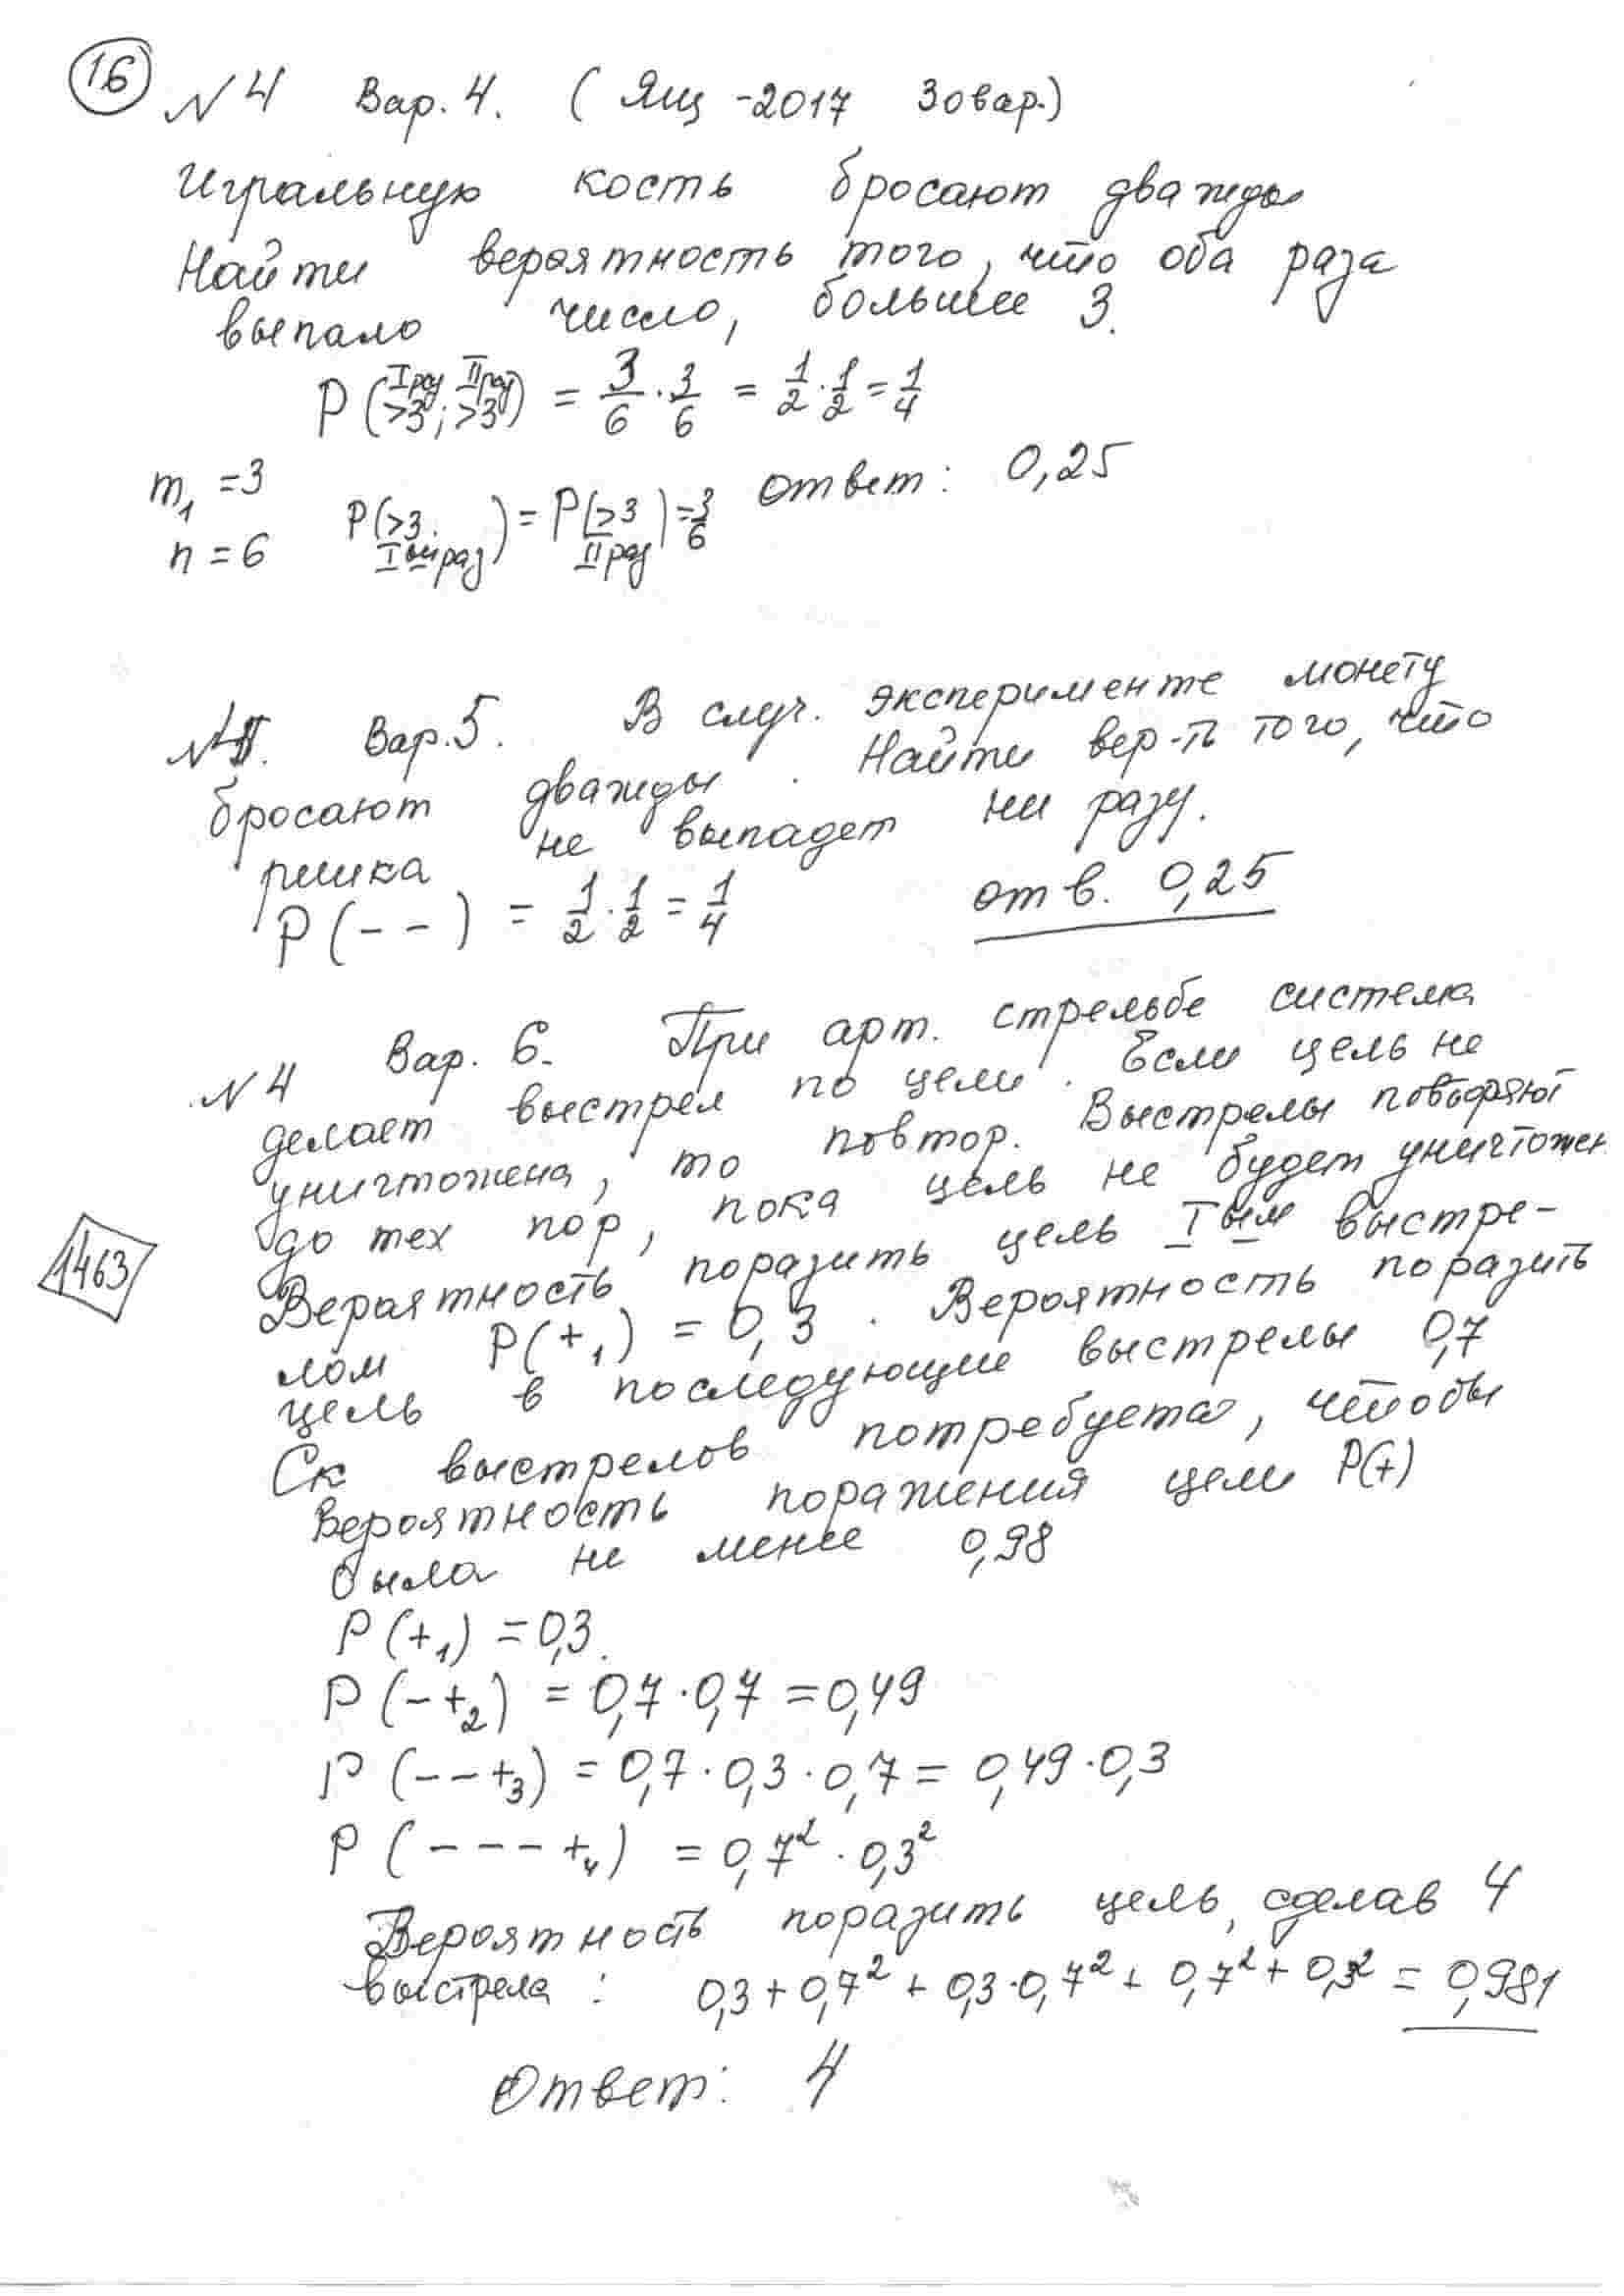 16
№4 Вар. 4. (Ящ -2017 30вар.)
Игральную кость бросают дважды
Найти вероятность того, что оба раза
выпало число, большее 3.
P(I раз >3; II раз >3) = 3/6 · 3/6 = 1/2 · 1/2 = 1/4
m₁ = 3
ответ: 0,25
n = 6 P(>3 I ый раз) = P(>3 II раз) = 3/6
№4. Вар. 5. В случ. эксперименте монету
бросают дважды. Найти вер-ть того, что
решка не выпадет ни разу.
P(--) = 1/2 · 1/2 = 1/4 отв. 0,25
№4 Вар. 6. При арт. стрельбе система
делает выстрел по цели. Если цель не
уничтожена, то повтор. Выстрелы повторяют
до тех пор, пока цель не будет уничтожен
1463
Вероятность поразить цель I ым выстре-
лом P(+₁) = 0,3. Вероятность поразить
цель в последующие выстрелы 0,7
Ск выстрелов потребуется, чтобы
вероятность поражения цели P(+)
была не менее 0,98
P(+₁) = 0,3.
P(-+₂) = 0,7·0,7 = 0,49
P(--+₃) = 0,7·0,3·0,7 = 0,49·0,3
P(---+₄) = 0,7²·0,3²
Вероятность поразить цель, сделав 4
выстрела: 0,3+0,7²+0,3·0,7²+0,7²+0,3² = 0,981
Ответ: 4